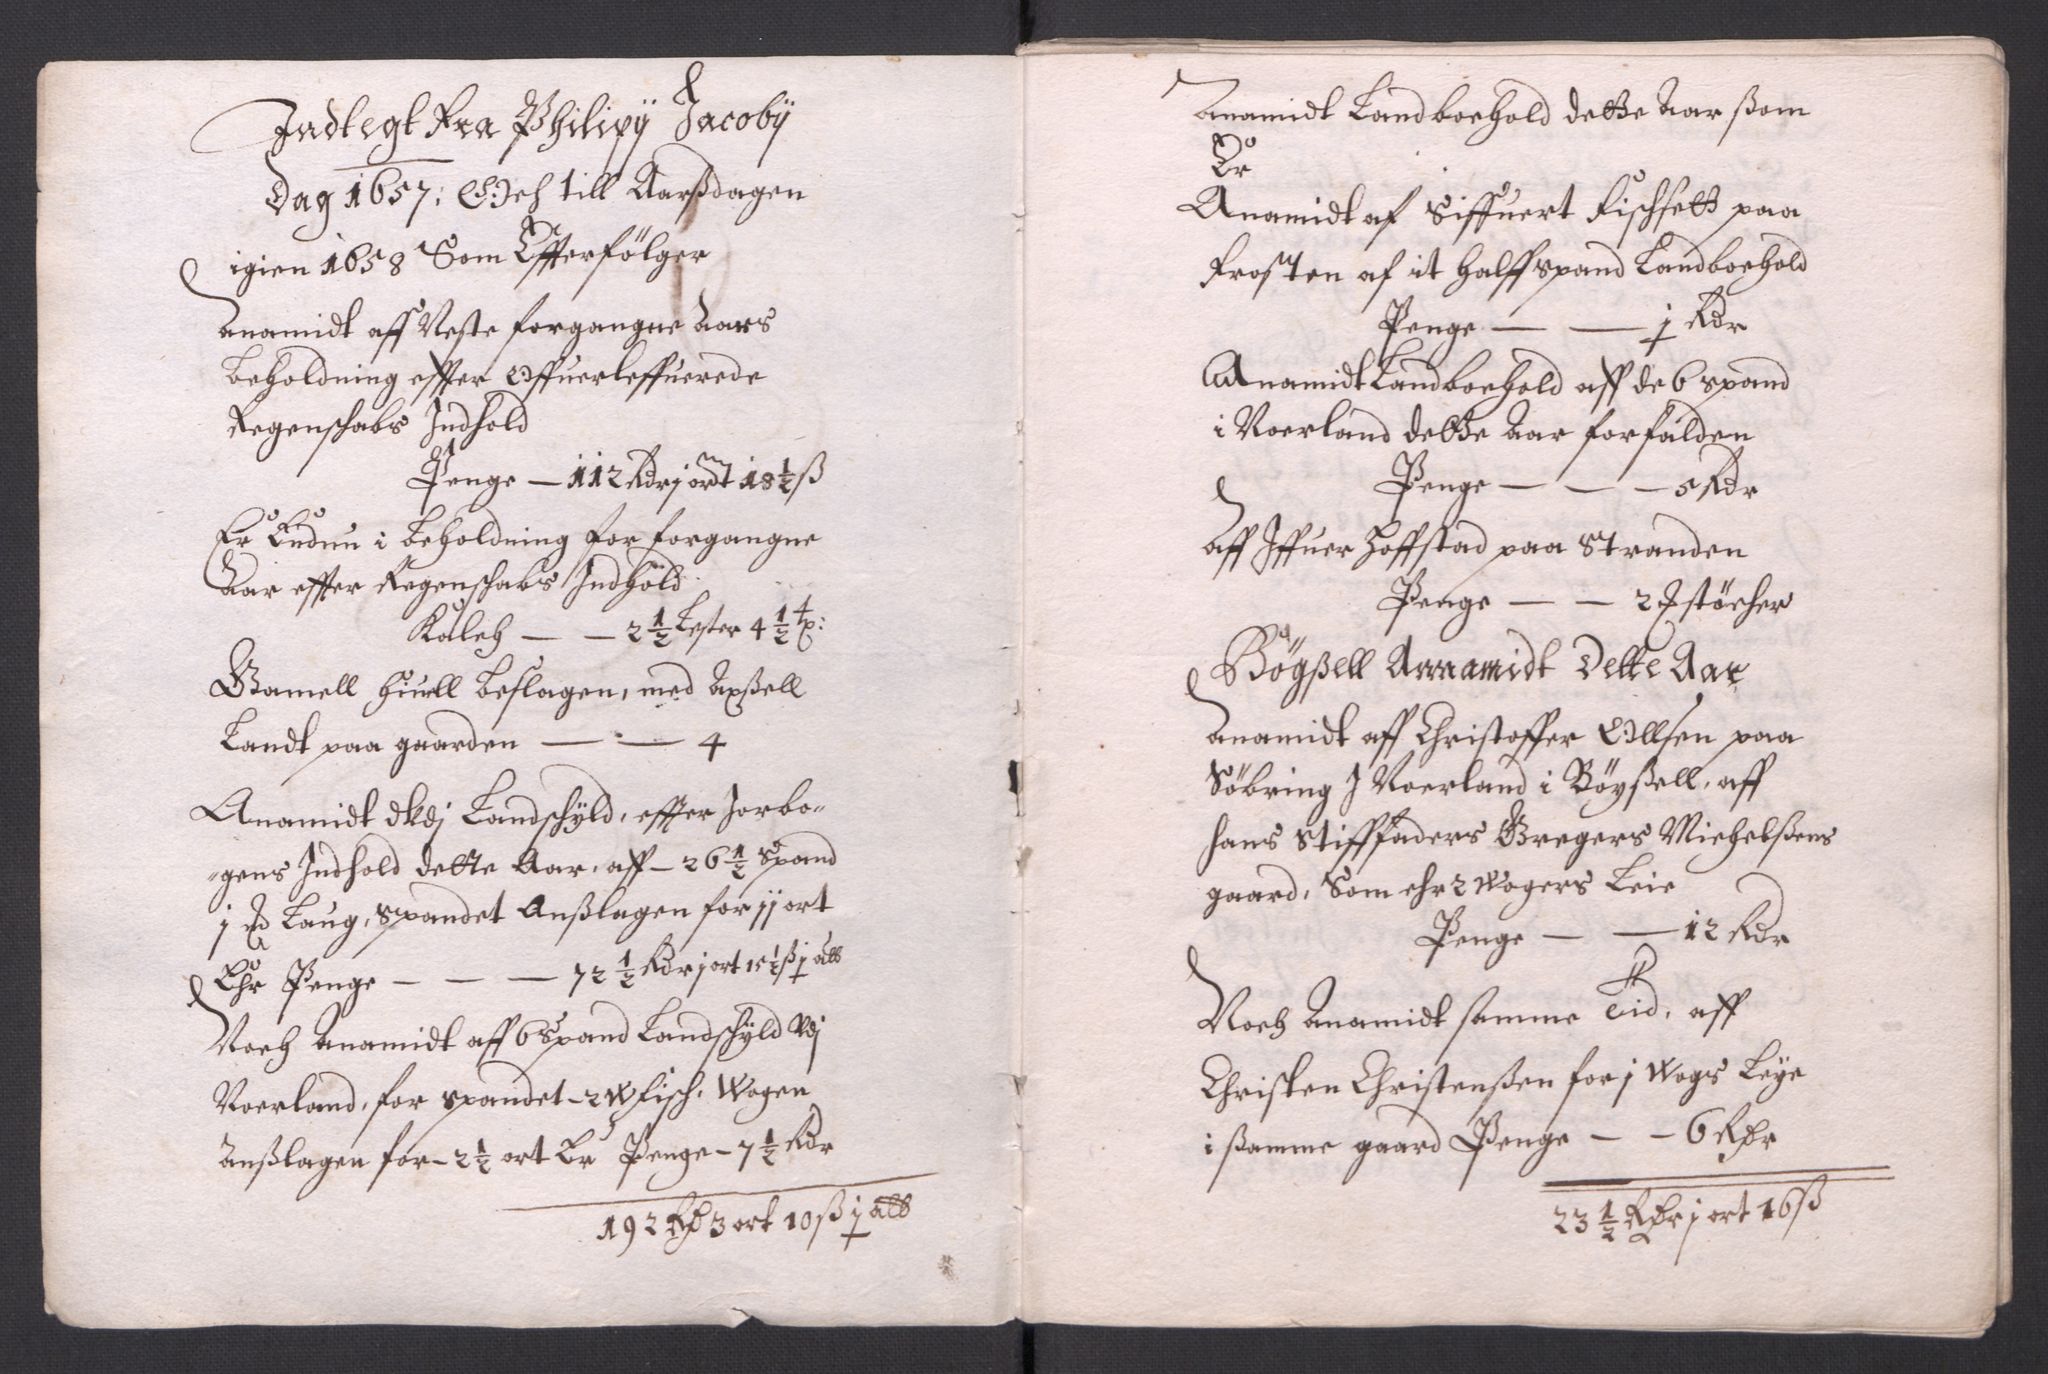 Indtegt Fra Philipij Jacobij
Dag 1657: Och till Aarßdagen
igien 1658 Som Effterfölger
Anamidt aff Neste forgangne Aars
Beholdning effter Offuerleffuerede
Regenschabs Indhold
Penge — 112 Rdr j ort 18½ ß
Er Endnu i beholdning for forgangne
Aar effter Regenschabs Indhold
Kalch — — 2½ Lester 4½ tr:
Gamell Hiuell beslagen, med Axßell
Landt paa gaarden — — 4
Anamidt Landschÿld, effter Jorbo-
-gens Indhold dette Aar, aff – 26½ Spand
j Laug, spandet Anßlagen for jj ort
Ehr Penge — — — 72½ Rdr j ort 15½ ß j alb
Noch Anamidt aff 6 Spand Landschÿld
Noerland, for spandet – 2 W fisch, Wogen
Anßlagen for – 2½ ort Er Penge – 7½ Rdr
192 Rd 3 ort 10 ß j alb
Anamidt Landboehold dette Aar ßom
Er
Anamidt af Siffuert Fischsett paa
Frosten af it halff spand Landboehold
Penge — — j Rdr
Anamidt Landboehold aff de 6 spand
i Noerland dette Aar forfalden
Penge — — — 5 Rdr
Aff Iffuer Hoffstad paa Stranden
Penge — — 2 støcher
Bögßell Annamidt Dette Aar
Anamidt aff Christoffer Ollsen paa
Söbring J Noerland i Böyßell, aff
hans Stifffaders Gregers Michelßens
gaard, Som ehr 2 Wogers Leie
Penge — — 12 Rdr
Noch Anamidt samme Tid, aff
Christen Christenßen for j Wogs Leÿe
i ßamme gaard Penge — — 6 Rdr
23½ Rdr j ort 16 ß